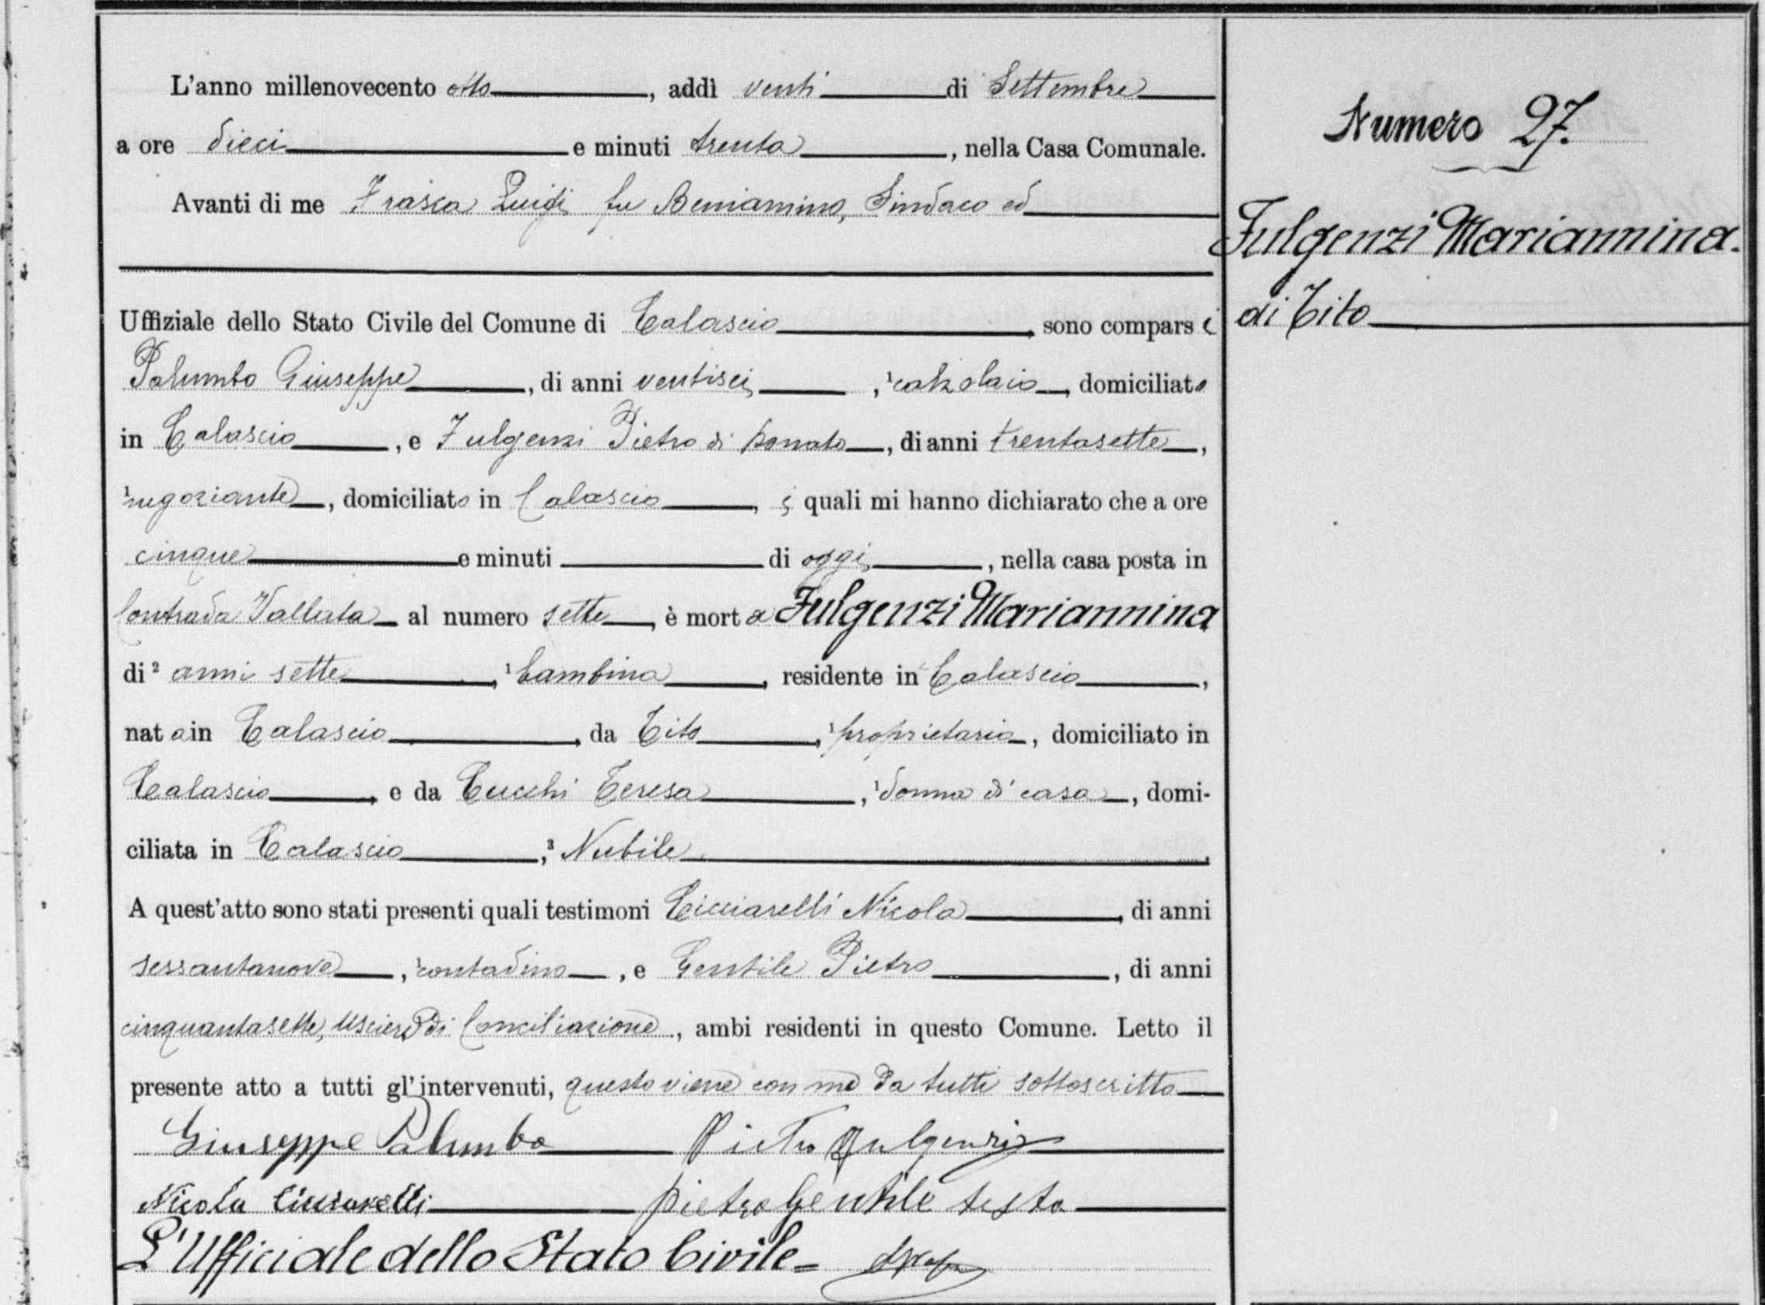 L'anno millenovecento otto, addì venti di Settembre
a ore dieci e minuti trenta, nella Casa Comunale.
Avanti di me Frasca Luigi fu Beniamino, Sindaco ed
Uffiziale dello Stato Civile del Comune di Calascio, sono comparsi
Palumbo Giuseppe, di anni ventisei, ¹calzolaio, domiciliato
in Calascio, e Fulgenzi Pietro di Donato, di anni trentasette,
¹negoziante, domiciliato in Calascio, i quali mi hanno dichiarato che a ore
cinque e minuti di oggi, nella casa posta in
Contrada Vallata al numero sette, è morta Fulgenzi Mariannina
di ² anni sette, ¹bambina, residente in Calascio,
nata in Calascio, da Tito, ¹proprietario, domiciliato in
Calascio, e da Cucchi Teresa, ¹donna di casa, domi-
ciliata in Calascio, ³ Nubile
A quest'atto sono stati presenti quali testimoni Cicciarelli Nicola, di anni
sessantanove, ¹contadino, e Gentile Pietro, di anni
cinquantasette, Usciere di Conciliazione, ambi residenti in questo Comune. Letto il
presente atto a tutti gl'intervenuti, questo viene con me da tutti sottoscritto
Giuseppe Palumbo Pietro Fulgenzi
Nicola Ciccarelli pietro Gentile testo
L'Ufficiale dello Stato Civile =
Numero 27.
Fulgenzi Mariannina.
di Tito